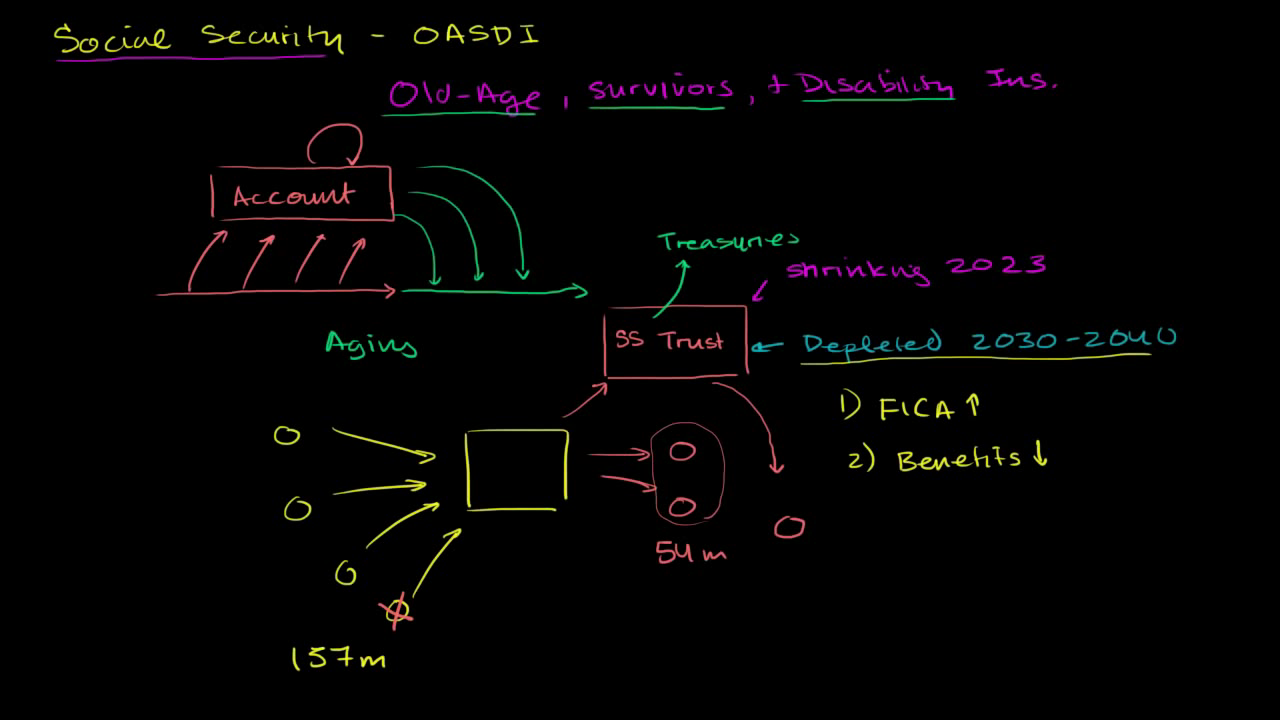 Social Security - OASDI
Old-Age, survivors, + Disability Ins.
Account
Treasuries
shrinking 2023
SS Trust
Depleted 2030-2040
Aging
1) FICA ↑
2) Benefits ↓
54m
157m